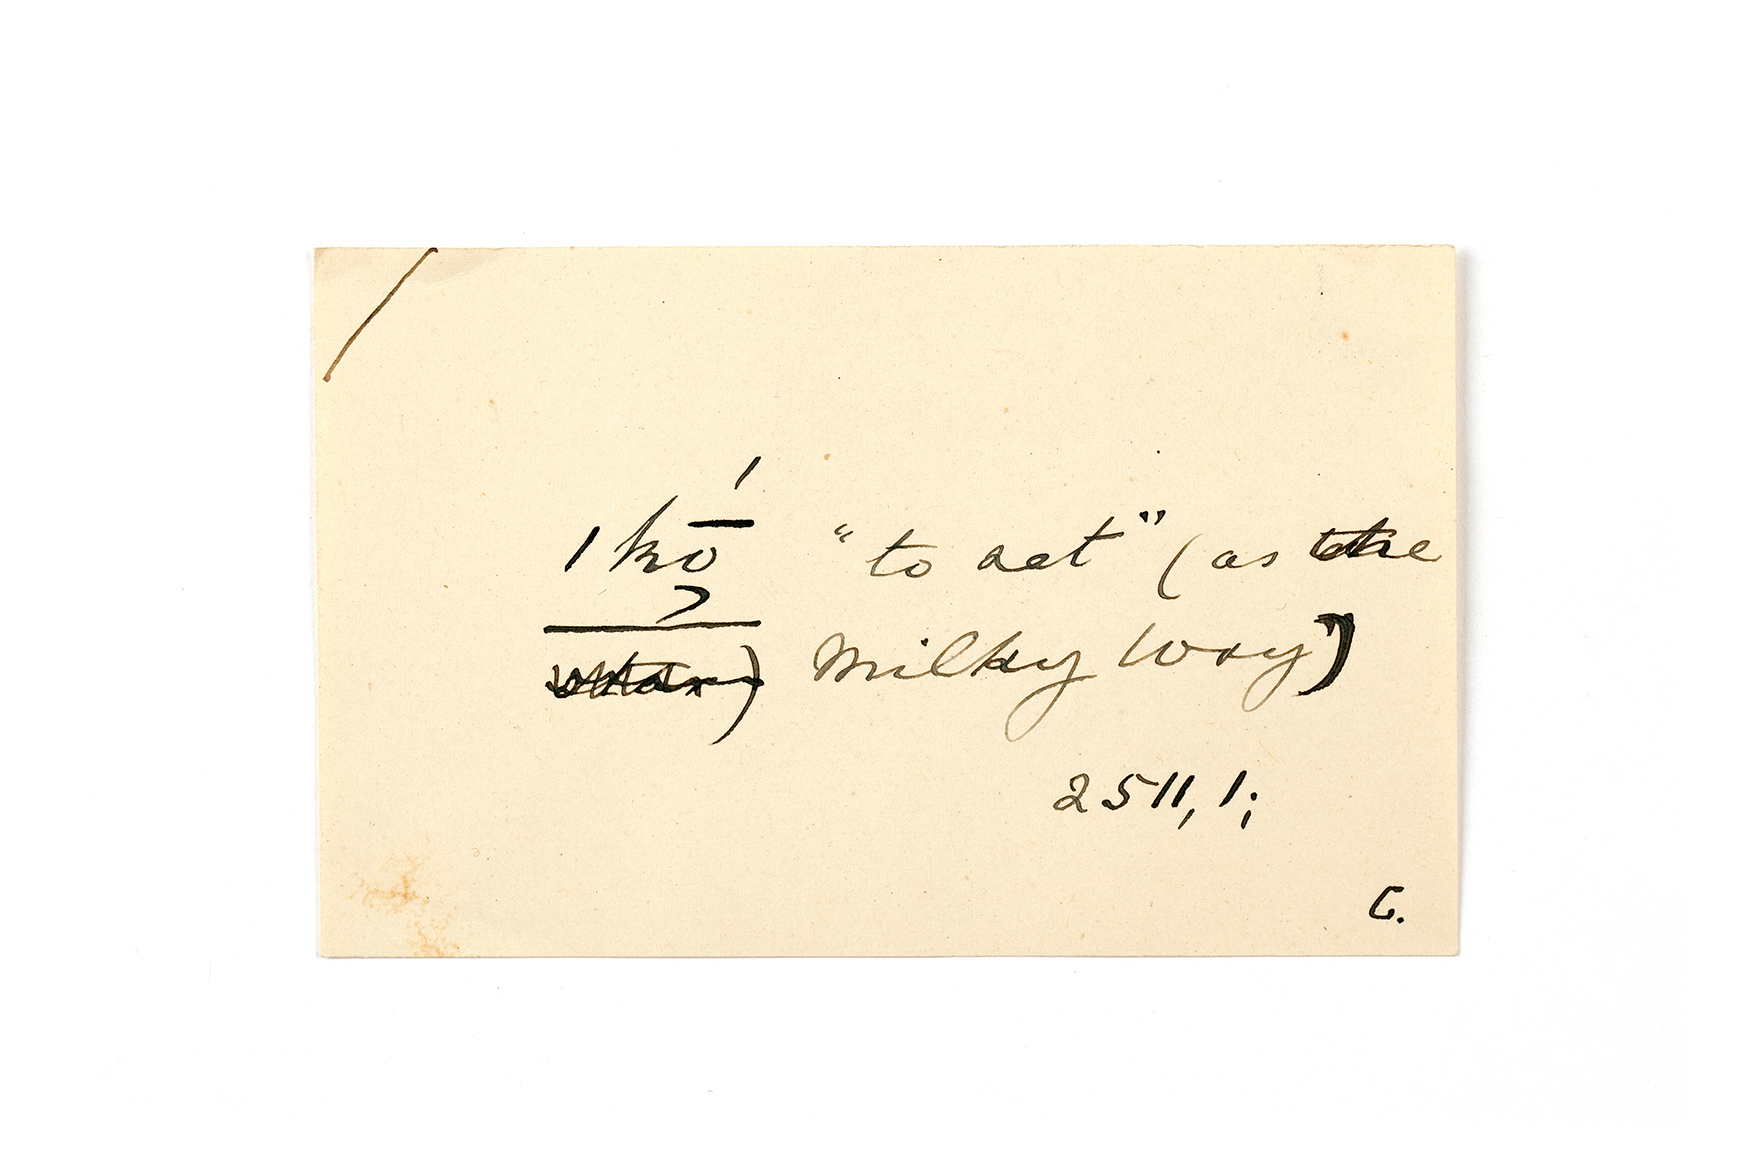 |kṓ̮ "to act" (as the
Milky Way)
2511, 1;
G.